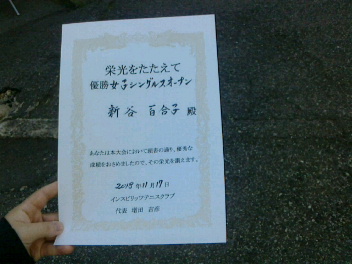 栄光をたたえて
優勝 女子シングルスオープン
新谷 百合子 殿
あなたは本大会において頭書の通り、優秀な
成績をおさめましたので、その栄光を讃えます。
インスピリッツテニスクラブ
代表 増田 吉彦